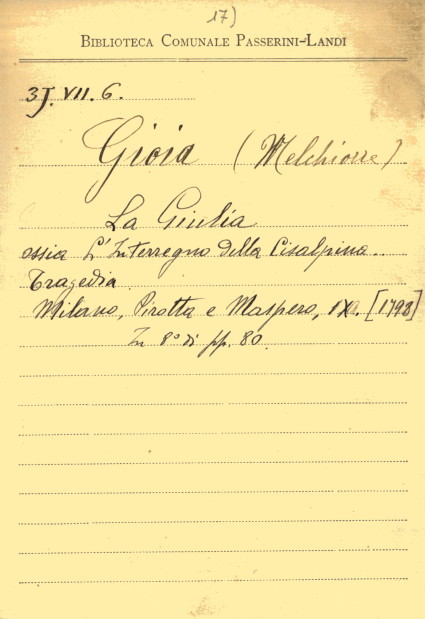 17)
BIBLIOTECA COMUNALE PASSERINI-LANDI
3J. VII. 6.
Gioia (Melchiorre)
La Giulia
ossia L'Interregno della Cisalpina.
Tragedia
Milano, Pirotta e Maspero, [1798]
In 8º di pp. 80.